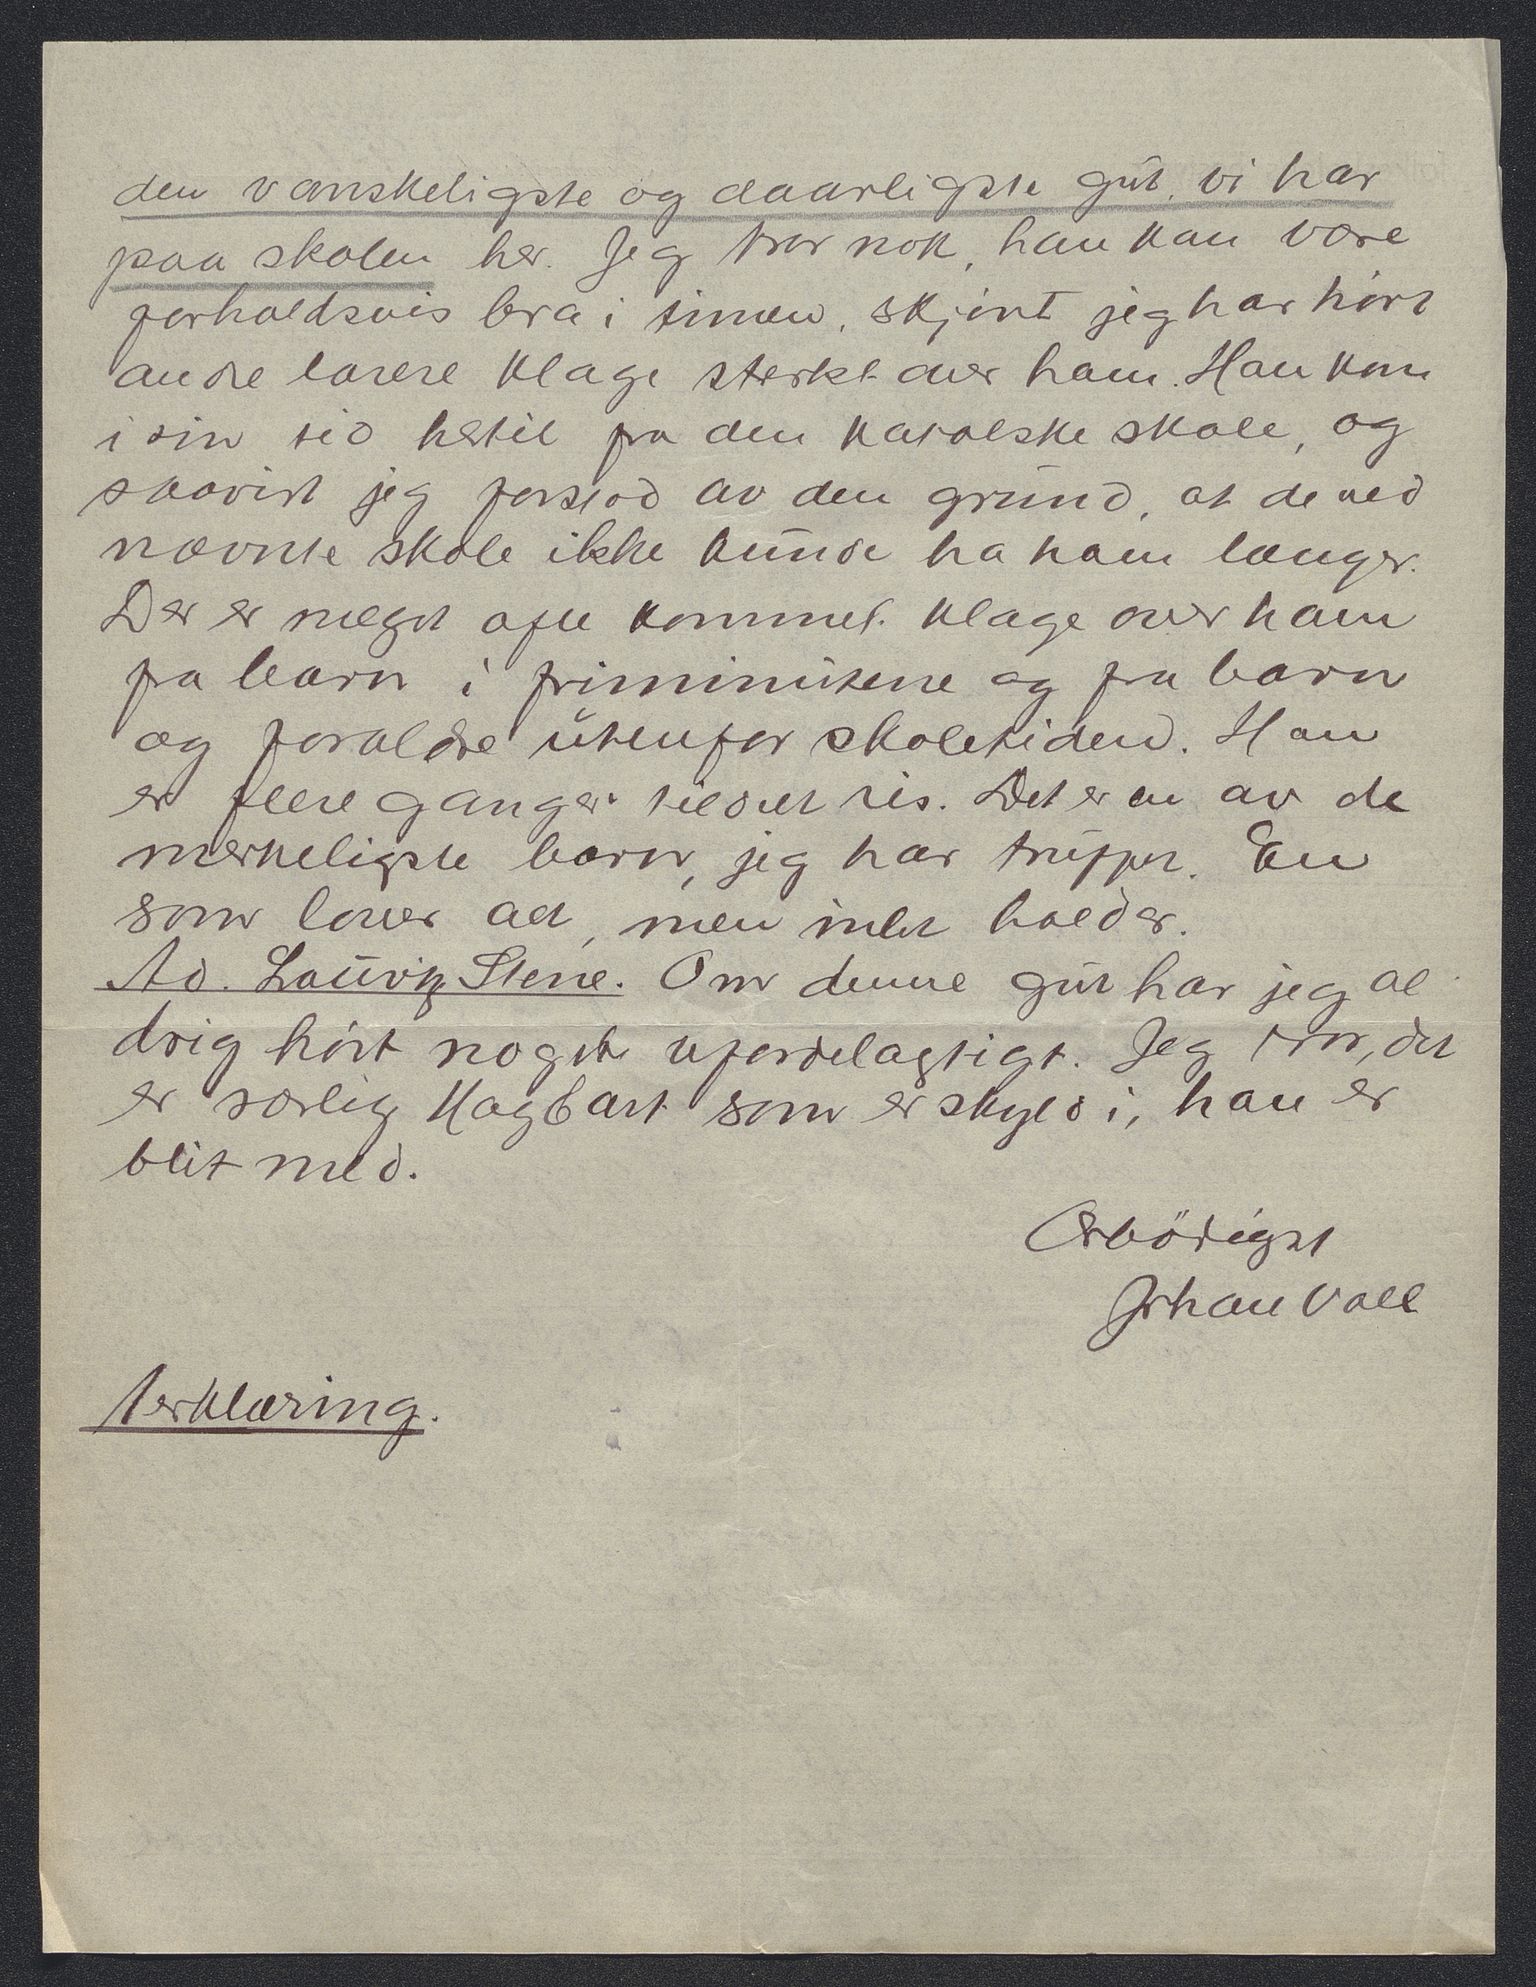 den vanskeligste og daarligste gut, vi har
paa skolen her. Jeg tror nok, han kan være
forholdsvis bra i timen, skjönt jeg har hört
andre lærere klage sterkt over ham. Han kom
i sin tid hertil fra den katolske skole, og
saavidt jeg forstod av den grund, at de ved
nævnte skole ikke kunde ha ham længer.
Der er meget ofte kommet klage over ham
fra barn i friminuttene og fra barn
og forældre utenfor skoletiden. Han
er flere ganger tildelt ris. Det er en av de
merkeligste barn, jeg har truffet. En
som lover alt, men intet holder.
Ad. Lauritz Stene. Om denne gut har jeg al
drig hört noget ufordelagtigt. Jeg tror, det
er særlig Hagbart som er skyld i, han er
blit med.
Ærbödigst
Johan Vall
Erklæring.